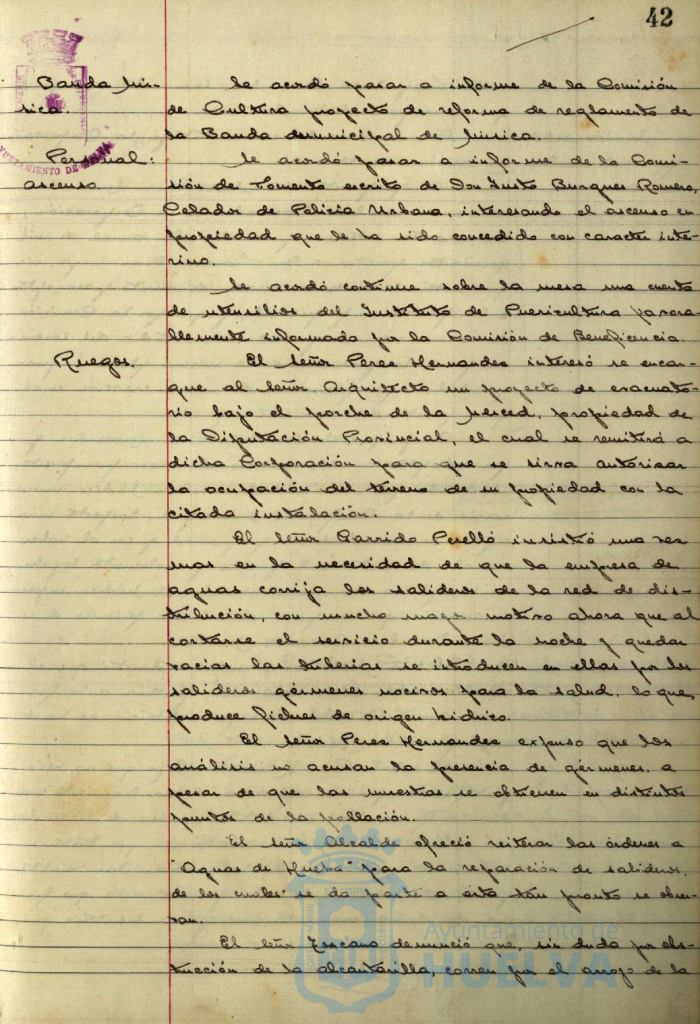 42
Banda Mú-
sica.
Se acordó pasar a informe de la Comisión
de Cultura proyecto de reforma de reglamento de
la Banda municipal de Música.
AYUNTAMIENTO DE HUELVA
Personal:
ascenso.
Se acordó pasar a informe de la Comi-
sión de Fomento escrito de Don Justo Burgues Romero,
Celador de Policía Urbana, interesando el ascenso en
propiedad que le ha sido concedido con caracter inte-
rino.
Se acordó continue sobre la mesa una cuenta
de utensilios del Instituto de Puericultura favora-
blemente informada por la Comisión de Beneficencia.
Ruegos.
El Señor Perez Hernandez interesó se encar-
gue al Señor Arquitecto un proyecto de evacuato-
rio bajo el porche de la Merced, propiedad de
la Diputación Provincial, el cual se remitirá a
dicha Corporación para que se sirva autorizar
la ocupación del terreno de su propiedad con la
citada instalación.
El Señor Garrido Perelló insistió una vez
mas en la necesidad de que la empresa de
aguas corrija los salideros de la red de dis-
tribución, con mucho mayor motivo ahora que al
cortarse el servicio durante la noche y quedar
vacias las tuberias se introducen en ellas por los
salideros gérmenes nocivos para la salud, lo que
produce fiebres de origen hídrico.
El Señor Perez Hernandez expuso que los
análisis no acusan la presencia de gérmenes, a
pesar de que las muestras se obtienen en distintos
puntos de la población.
El Señor Alcalde ofreció reiterar las órdenes a
"Aguas de Huelva" para la reparación de salideros,
de los cuales se da parte a ésta tan pronto se obser-
van.
El Señor Toscano denunció que, sin duda por obs-
trucción de la alcantarilla, corren por el arroyo de la
Ayuntamiento de
HUELVA